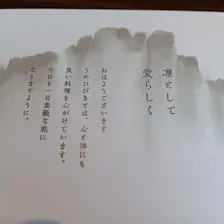 凛として
愛らしく
おはようございます
うめひびきでは、心と体にも
良い料理を心がけています。
今日も一日素敵な旅に
なりますように。